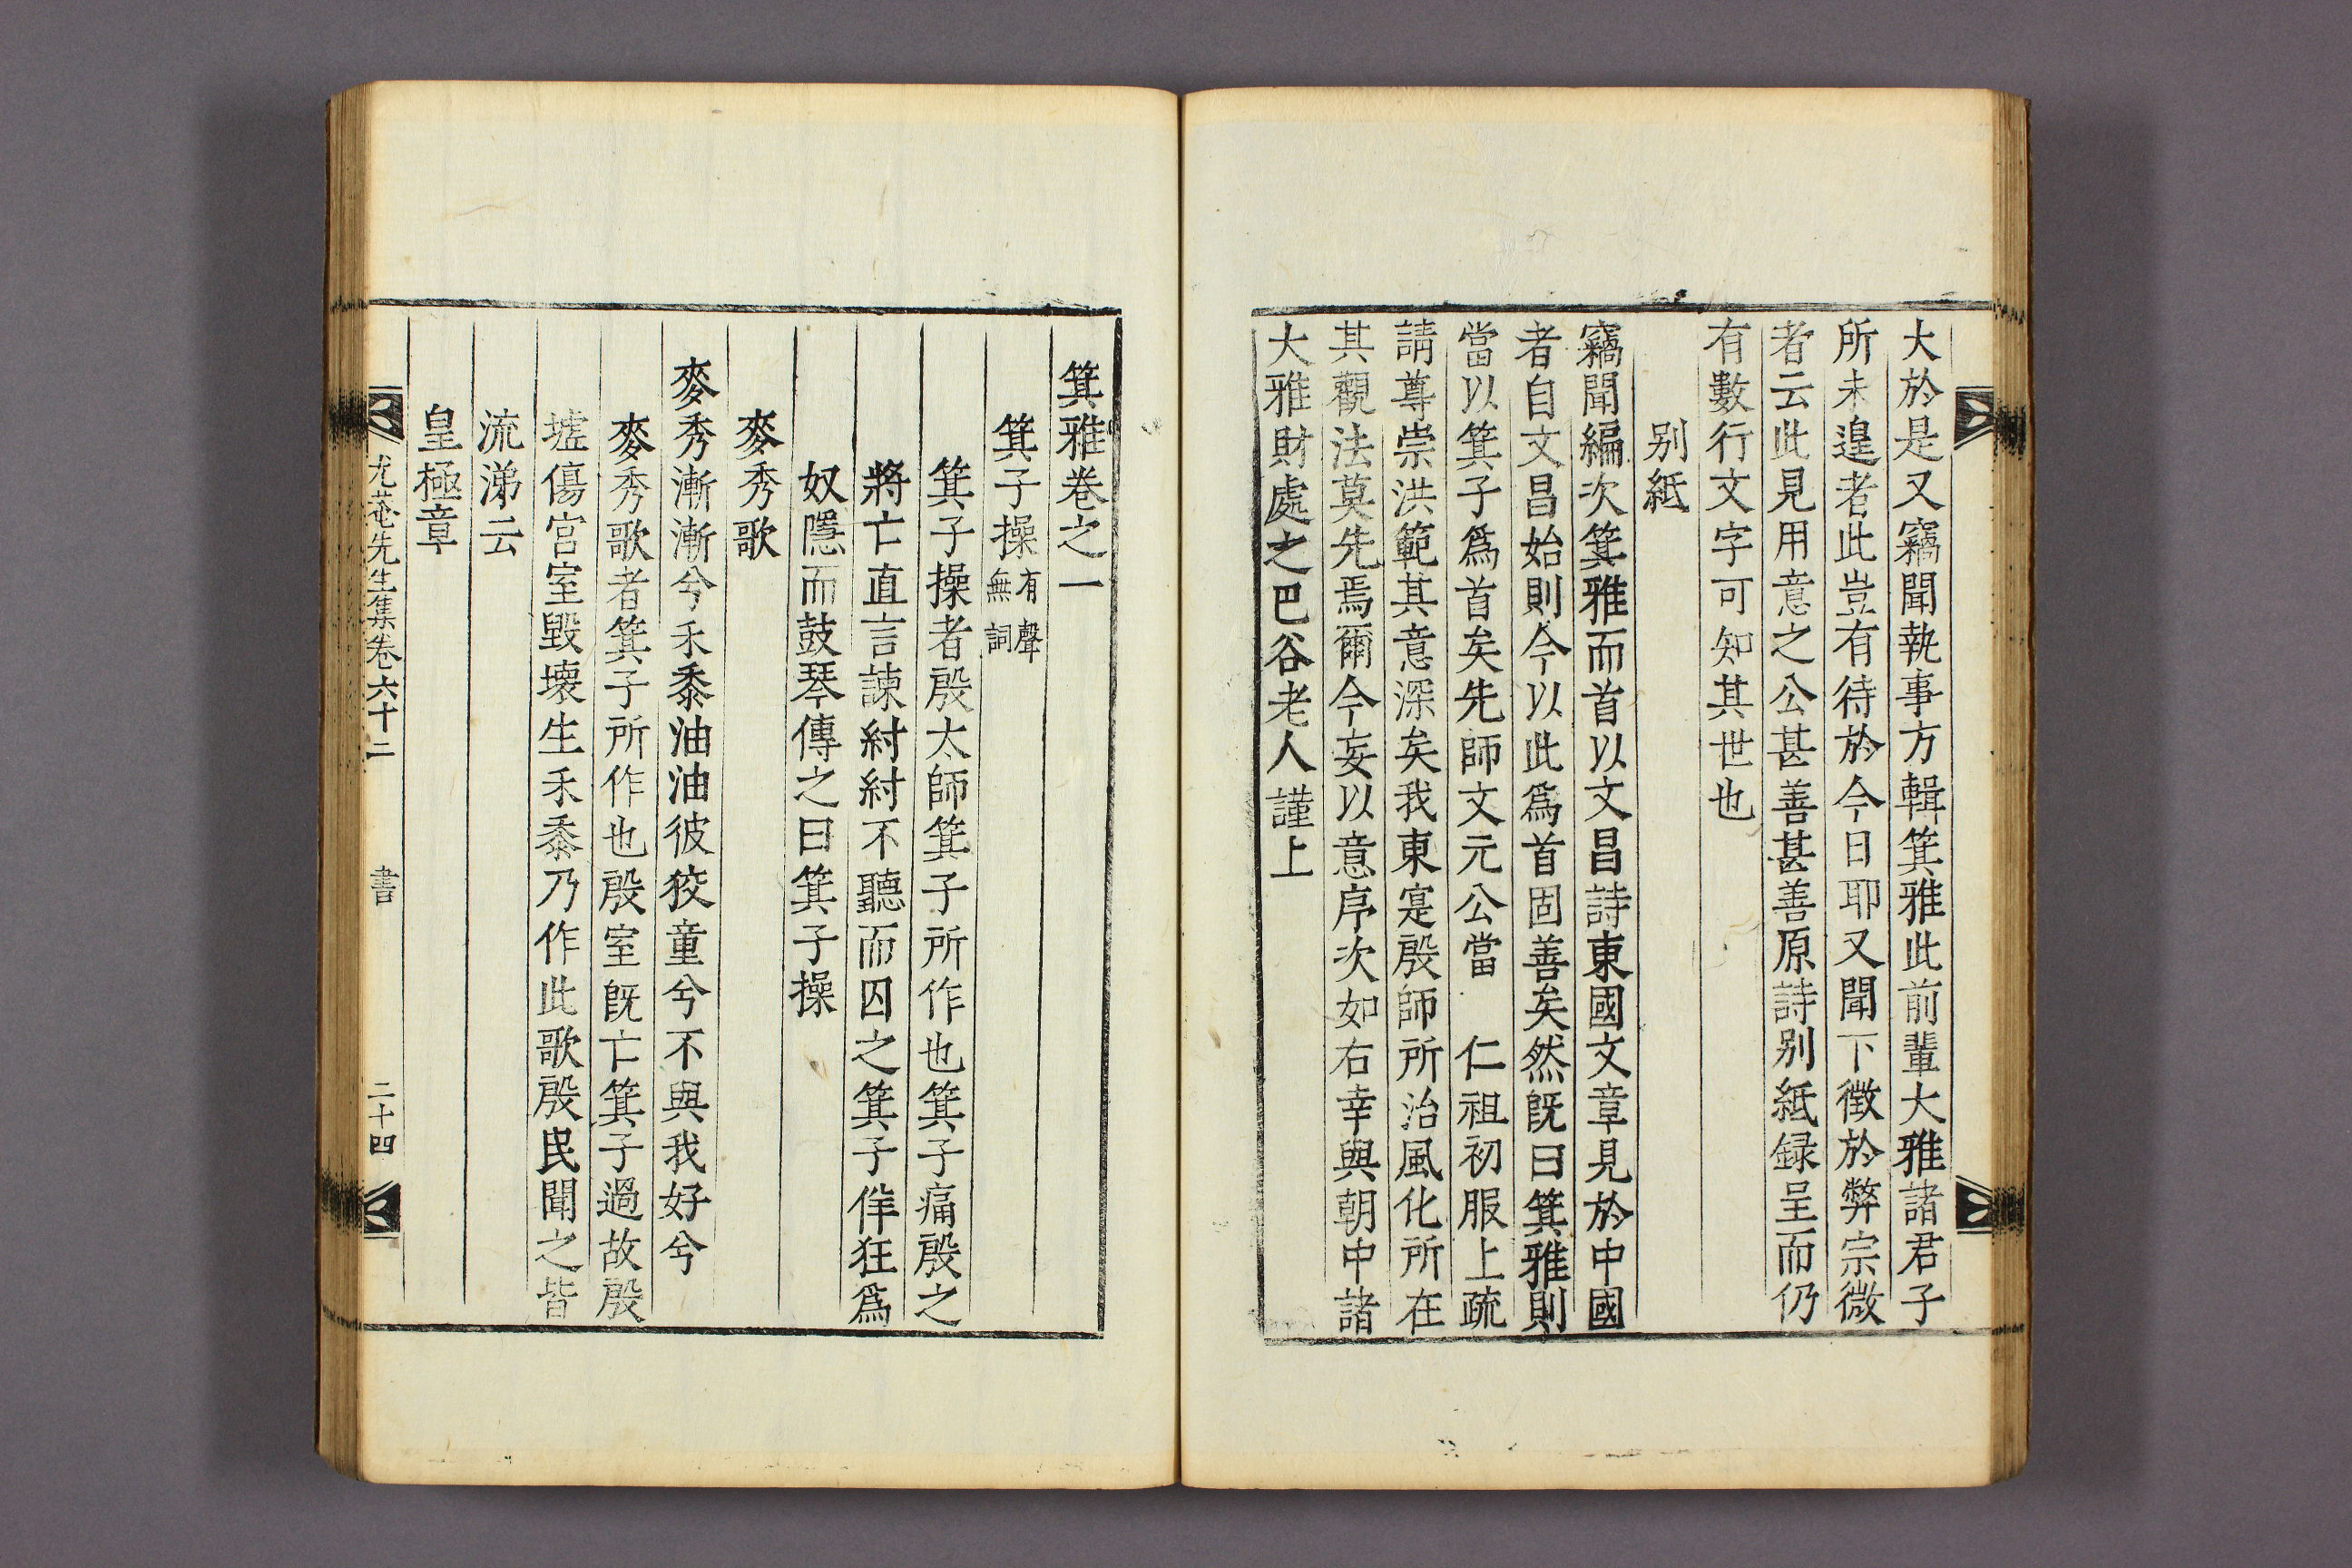 大於是又竊聞執事方輯箕雅此前輩大雅諸君子
所未遑者此豈有待於今日耶又聞下徵於弊宗微
者云此見用意之公甚善甚善原詩别紙録呈而仍
有數行文字可知其世也
别紙
竊聞編次箕雅而首以文昌詩東國文章見於中國
者自文昌始則今以此爲首固善矣然旣曰箕雅則
當以箕子爲首矣先師文元公當 仁祖初服上疏
請尊崇洪範其意深矣我東寔殷師所治風化所在
其觀法莫先焉爾今妄以意序次如右幸與朝中諸
大雅財處之巴谷老人謹上
箕雅卷之一
箕子操有聲無詞
箕子操者殷太師箕子所作也箕子痛殷之
將亡直言諫紂紂不聽而囚之箕子佯狂爲
奴隱而鼓琴傳之曰箕子操
麥秀歌
麥秀漸漸兮禾黍油油彼狡童兮不與我好兮
麥秀歌者箕子所作也殷室旣亡箕子過故殷
墟傷宮室毀壞生禾黍乃作此歌殷民聞之皆
流涕云
皇極章
尤菴先生集卷六十二 書 二十四